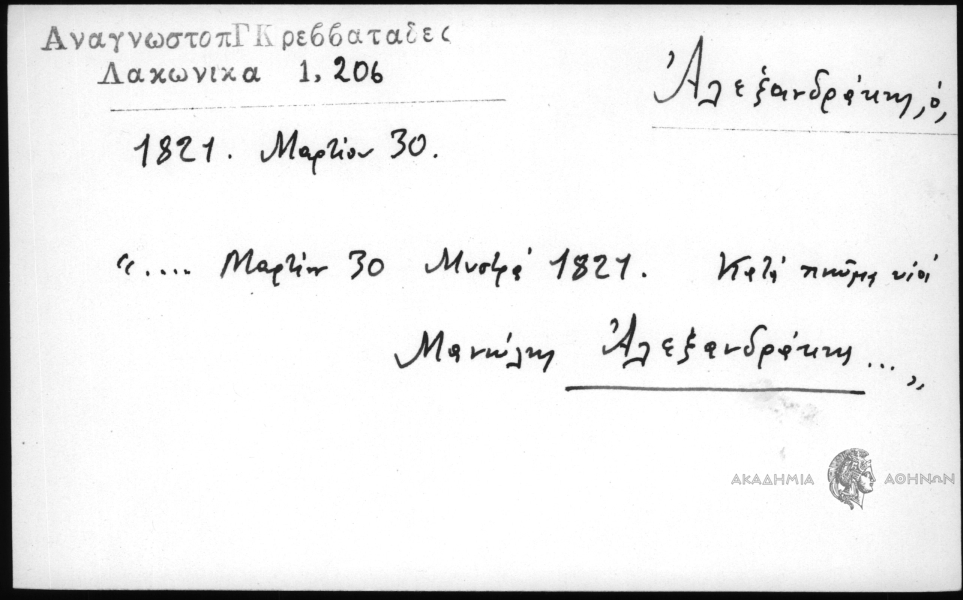 ΑναγνωστοπΓΚρεββαταδες
Λακωνικα 1, 206
Ἀλεξανδράκης, ὁ,
1821. Μαρτίου 30.
“.... Μαρτίου 30 Μυστρᾷ 1821. Κατὰ πνεῦμα υἱοὶ
Μανώλης Ἀλεξανδράκης ...„
ΑΚΑΔΗΜΙΑ ΑΘΗΝΩΝ